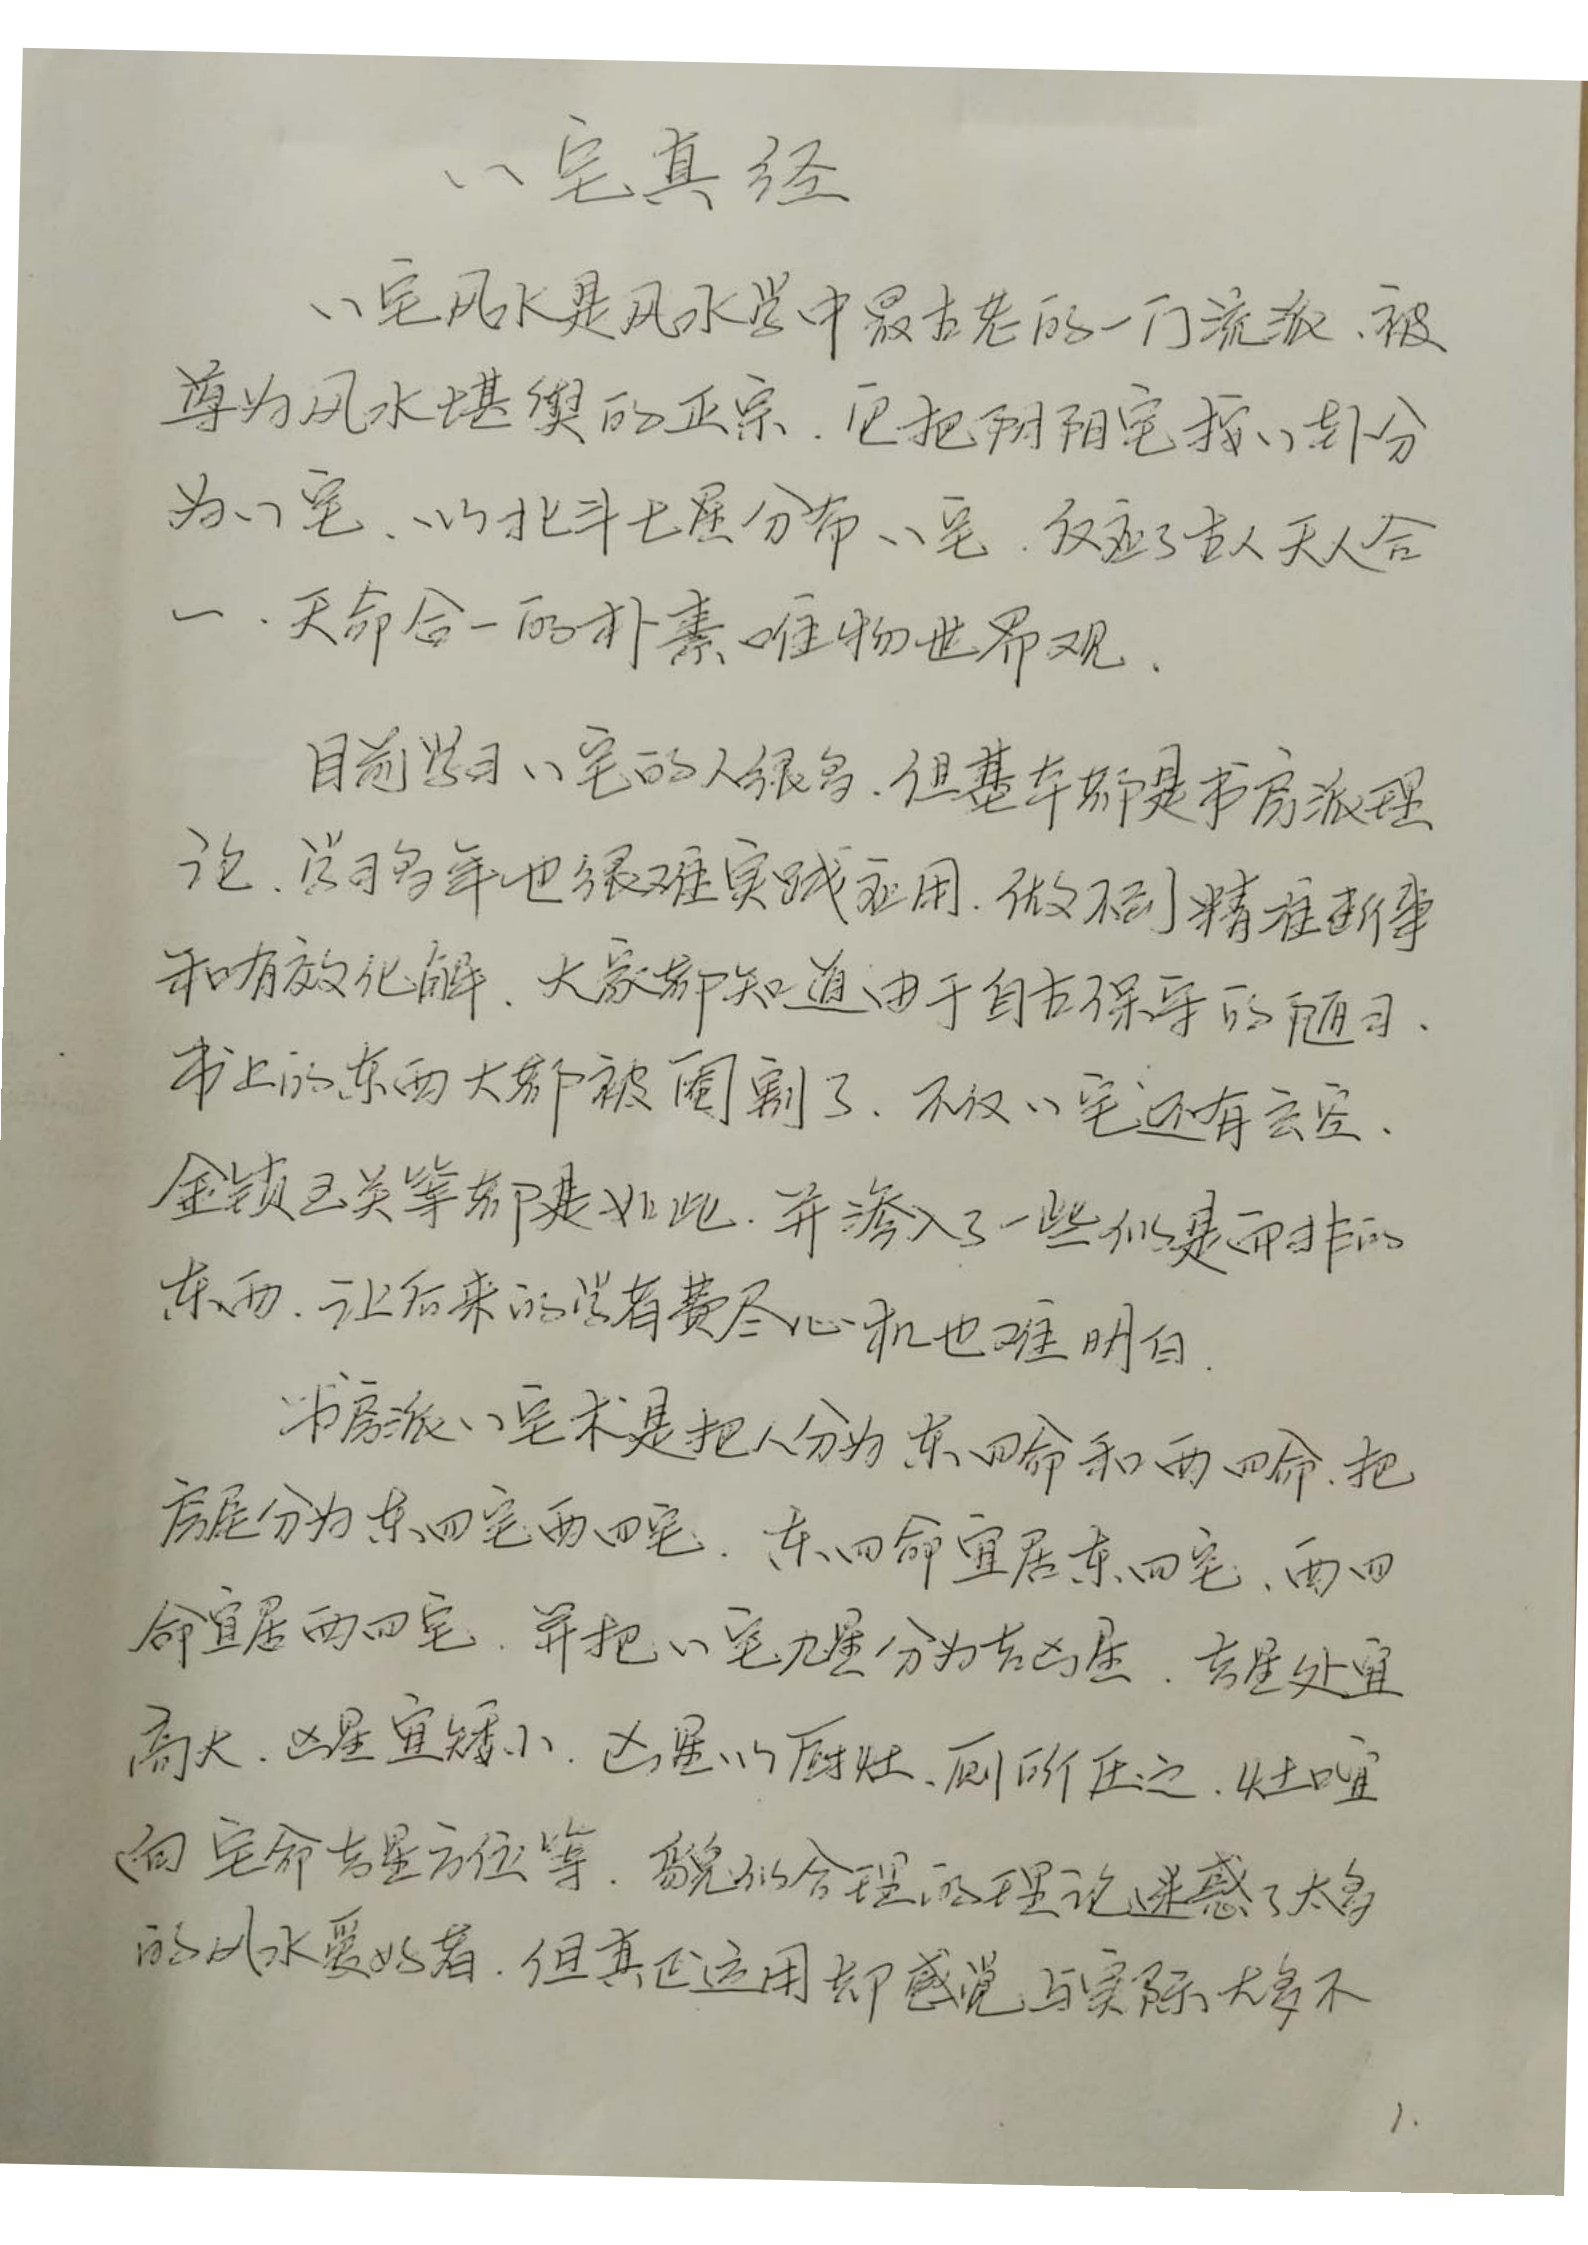 八宅真经
八宅风水是风水学中最古老的一门流派、被
尊为风水堪舆的正宗．它把阴阳宅按八卦分
为八宅、以北斗七星分布八宅．反应了古人天人合
一．天命合一的朴素唯物世界观．
目前学习八宅的人很多．但基本都是书房派理
论、学习多年也很难实践应用．做不到精准断事
和有效化解．大家都知道由于自古保守的陋习、
书上的东西大都被阉割了、不仅八宅还有玄空、
金锁玉关等都是如此．并渗入了一些似是而非的
东西、让后来的学者费尽心机也难明白．
书房派八宅术是把人分为东四命和西四命、把
房屋分为东四宅西四宅．东四命宜居东四宅、西四
命宜居西四宅．并把八宅九星分为吉凶星．吉星处宜
高大．凶星宜矮小．凶星以厨灶、厕所压之．灶口宜
向宅命吉星方位等．貌似合理的理论迷惑了太多
的风水爱好者．但真正运用却感觉与实际大多不
1.